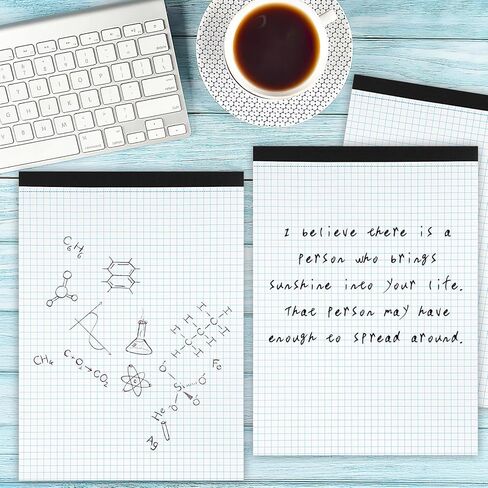 C6H6
CH4
C+O2→CO2
H H H H
C C C C
H H H H
Fe
O-
Si
O-
O-
O-
He
Ag
I believe there is a
person who brings
sunshine into your life.
That person may have
enough to spread around.